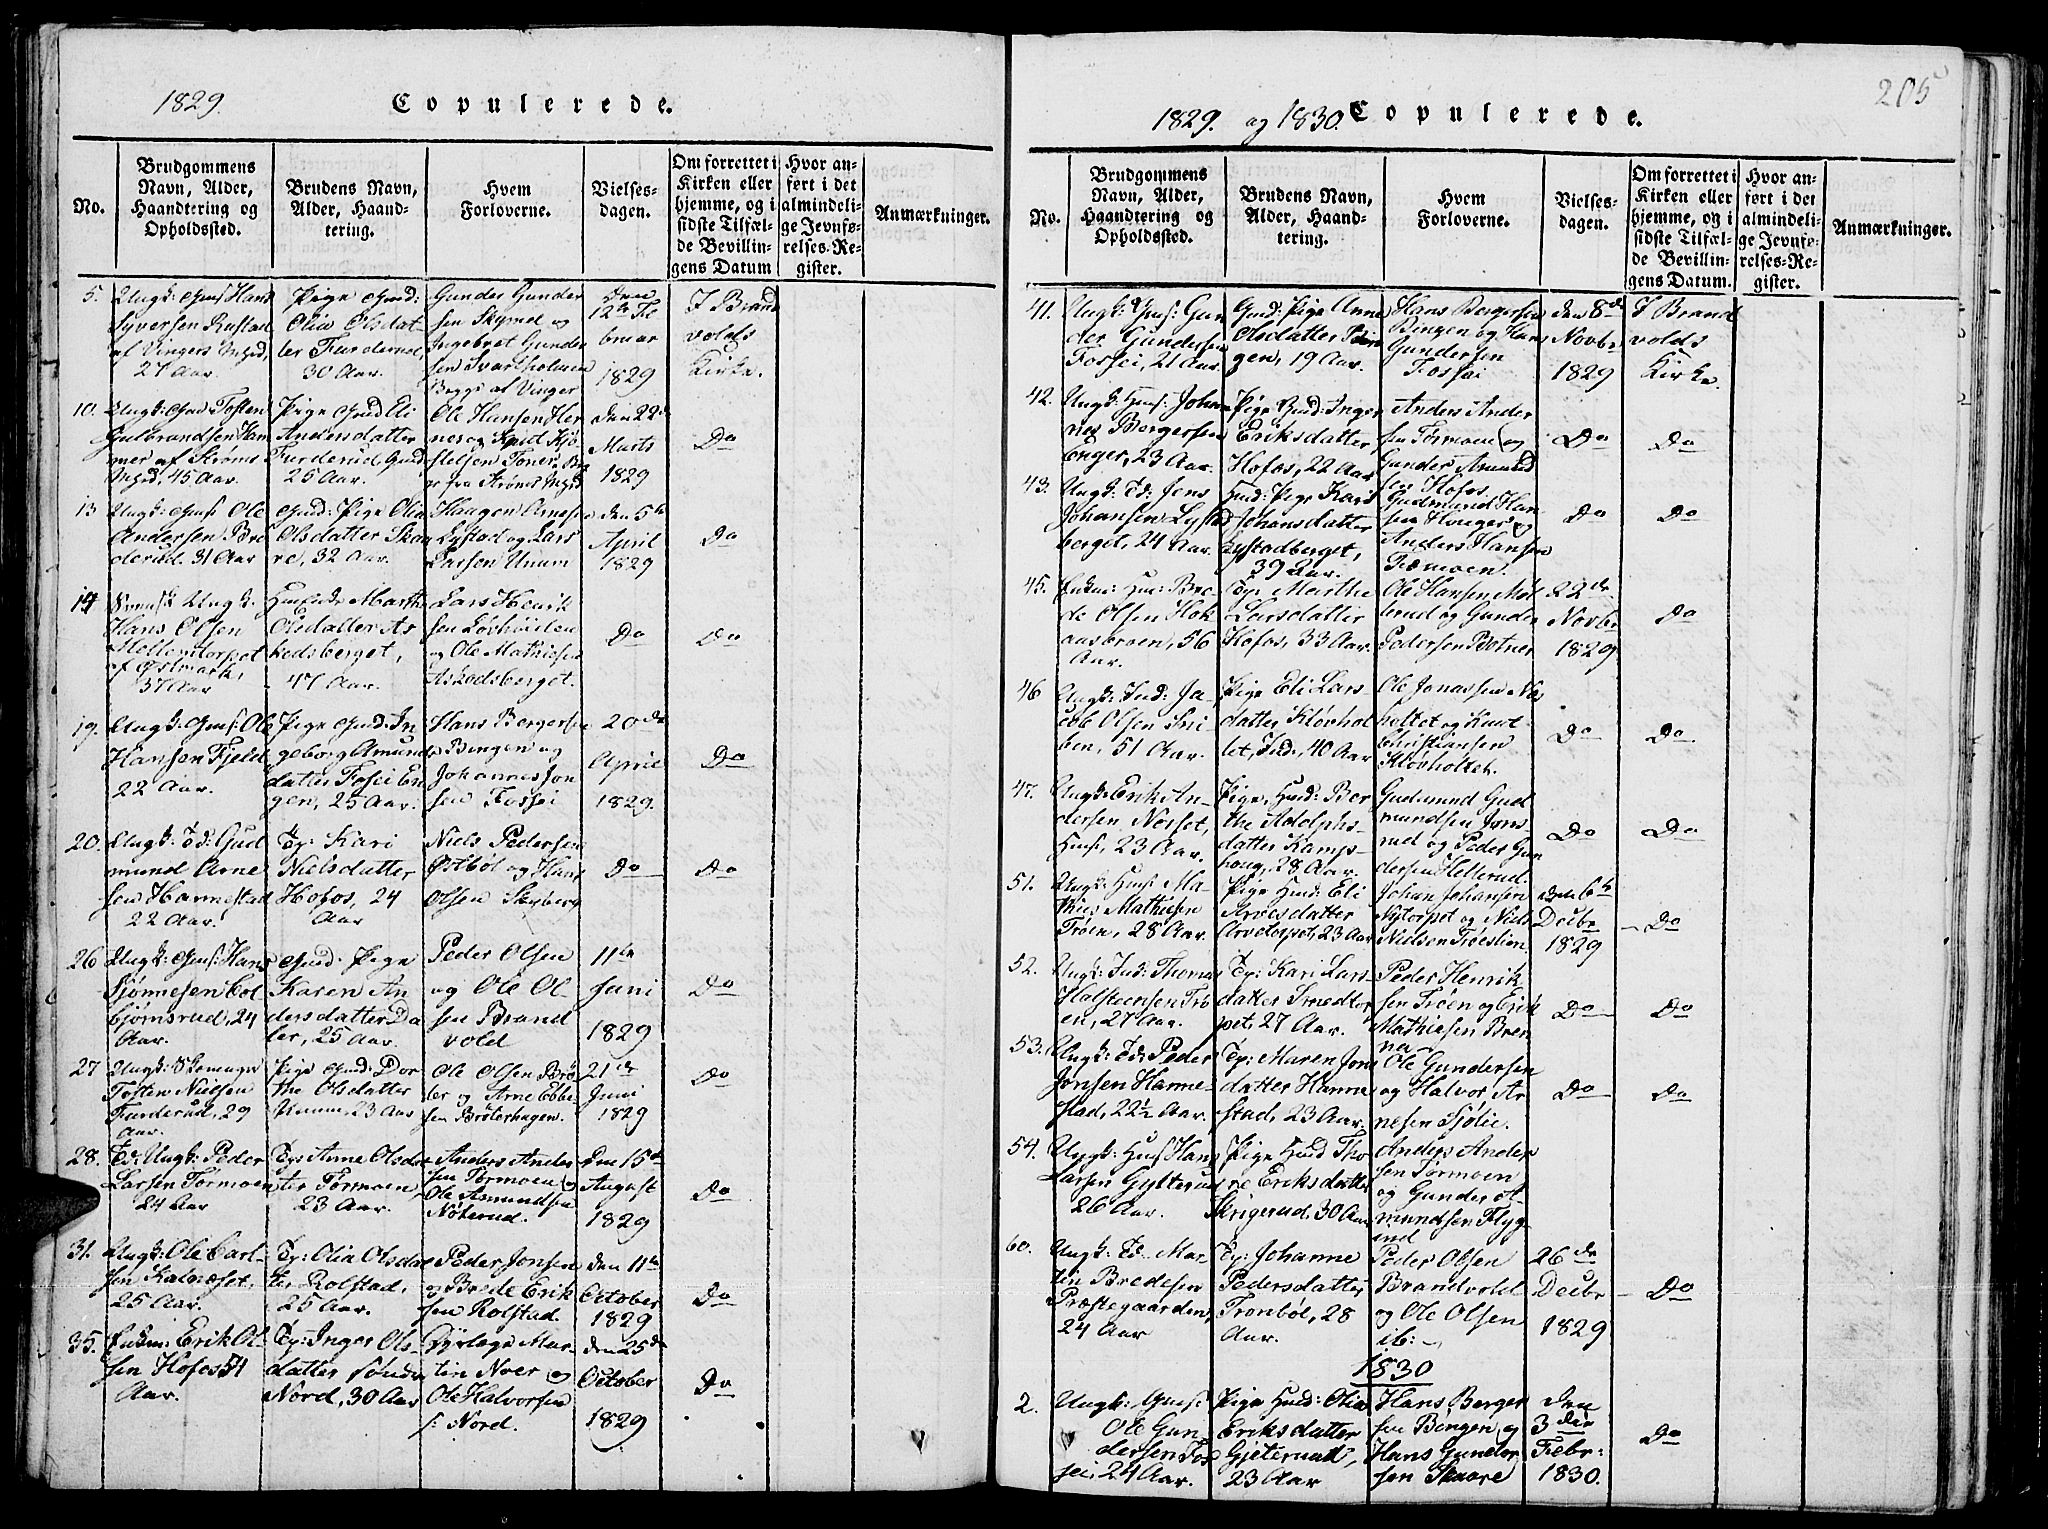 1829.
Copulerede.
No.
Brudgommens
Navn, Alder,
Haandtering og
Opholdssted.
Brudens Navn,
Alder, Haand-
tering.
Hvem
Forloverne.
Vielses-
dagen.
Om forrettet i
Kirken eller
hjemme, og i
sidste Tilfæl-
de Bevillin-
gens Datum
Hvor an-
ført i det
almindeli-
ge Jevnfø-
relses-Re-
gister.
Anmærkninger.
5.
Ungk: Hans
Syversen Rustad
af Vingers
27 Aar.
Pige
Olia Olsdat-
ter Furderud,
30 Aar.
Gunder Gunder
sen Skymd og
Ingebret Gunder
sen Svartholmen
Begge af Vinger
Den
12te Fe
bruar
1829
I Brand
volds
Kirke.
10.
Ungk: Tosten
Gulbrandsen Ham
mer af Strøms
45 Aar.
Pige Eli
Andersdatter
Furderud
25 Aar.
Ole Hansen
nes og Knut Kjø-
stelsen Toner
fra Strøms
den 22de
Marts
1829
Do
13
Ungk: Ole
Andersen Bre
derud. 31 Aar
Pige Olia
Olsdatter Ska
re, 32 Aar.
Haagen Arnesen
Lystad og Lars
Larsen Unum
den 5te
April
1829
Do
14
Svensk Ungk.
Hans Olsen
af Østmark,
37 Aar
Marthe
Olsdatter As
kedsberget,
47 Aar.
Lars Henrik
sen Løvhøiden
og Ole Mathiesen
Askedsberget.
Do
Do
19.
Ungk: Ole
Hansen Fjeld
22 Aar.
Pige In
geborg Amunds
datter Fossei En
gen, 25 Aar.
Hans Bergersen
Bingen og
Johannes Jon
sen Fossei
20de
April
1829.
Do
20.
Ungk: Gud
mund Arne
sen Harmestad
22 Aar.
Kari
Nielsdatter
Hofos, 24
Aar
Niels Pedersen
Østbøl og Hans
Olsen Skyberg
Do
Do
26
Ungk: Hans
bjørnsrud, 24
Aar.
Pige
Karen An
dersdatter Da
ler, 25 Aar.
Peder Olsen
og Ole Ol-
sen Brand
vold
11te
Juni
1829
Do
27
Ungk: Skomager
Tosten Nielsen
Furderud, 29
Aar.
Pige Dor
the Olsdatter
Unum, 23 Aar
Ole Olsen Brø-
ter og Arne Ebbe-
sen Brøterhagen.
21de
Juni
1829
Do
28.
Ungk: Peder
Larsen Tormoen
24 Aar
Anne Olsdat
ter Tørmoen
23 Aar.
Anders Ander
sen Tørmoen og
Ole Asmundsen
Nøterud.
Den 15de
August
1829
Do
31.
Ungk: Ole Carl-
sen Kalneset,
25 Aar.
Olia Olsdat
ter Rolstad,
25 Aar.
Peder Jonsen
og Brede Erik
sen Rolstad.
den 11te
October
1829
Do
35.
Enkem: Erik Ol-
sen Hofos 51
Aar.
Inger Ols-
datter søndr
Nord, 30 Aar
Dyrlæge Mar-
tin Noer og
Ole Halvorsen
s: Nord.
den 25de
October
1829
Do
205
1829. og 1830.
Copulerede.
No.
Brudgommens
Navn, Alder,
Haandtering og
Opholdssted.
Brudens Navn,
Alder, Haand-
tering.
Hvem
Forloverne.
Vielses-
dagen.
Om forrettet i
Kirken eller
hjemme, og i
sidste Tilfæl-
de Bevillin-
gens Datum.
Hvor an-
ført i det
almindeli-
ge Jevnfø-
relses-Re-
gister.
Anmærkninger.
41.
Ungk: Gun
der Gundersen
Fossei, 21 Aar.
Pige Anne
Olsdatter Bin
gen, 19 Aar.
Hans Bergersen
Bingen og Hans
Gundersen
Fossei
den 8de
Novbr
1829
I Brand
volds
Kirke.
42.
Ungk: Hus: Johan
nes Bergersen
Enger, 23 Aar.
Pige Hmd: Inger
Eriksdatter
Hofos, 22 Aar
Anders Ander
sen Tørmoen og
Gunder Amund
sen Hofos.
Do
Do
43.
Ungk: Jens
Johansen Lystad
berget, 24 Aar.
Pige Kari
Johansdatter
Lystadberget,
39 Aar.
Gudmund Han
sen Houger og
Anders Hansen
Tørmoen.
Do
Do
45.
Enkem: Hus: Bre
de Olsen Hok
aasbroen, 56
Aar.
Marthe
Larsdatter
Hofos, 33 Aar.
Ole Hansen Møl
berud og Gunder
Pedersen Botner
22de
Novbr
1829
Do
46
Ungk: Ind: Ja-
cob Olsen Sni-
ben, 51 Aar.
Pige Eli Lars-
datter Kløvhol
tet, Ind:, 40 Aar
Ole Jonassen
holtet og Knut
Christiansen
Kløvholtet.
Do
Do.
47.
Ungk: Erik An-
dersen Norset,
Hus:, 23 Aar.
Pige, Hmd: Ber
the Adolphs-
datter Kamp-
houg, 28 Aar.
Gudmund Gud
mundsen Jons-
rud og Peder Gun
dersen Hellerud.
Do
Do
51.
Ungk: Hus: Ma-
thies Mathiesen
Trøen, 28 Aar.
Pige Hmd: Eli
Arnesdatter
Arvetorpet, 23 Aar
Johan Johansen
Nytorpet og Niels
Nielsen Trøestien
den 6te
Decbr
1829
Do
52.
Ungk: Ind: Thomas
Halsteensen Trø-
en, 27 Aar.
Kari Lars-
datter Smedtor
pet, 27 Aar.
Peder Henrik-
sen Trøen og Erik
Mathiesen Bren
na
Do
Do
53.
Ungk: Peder
Jonsen Harme-
stad, 22½ Aar.
Maren Jons
datter Harme
stad, 23 Aar.
Ole Gundersen
og Halvor Ar
nesen Sjølie.
Do
Do
54.
Ungk: Hus Hans
Larsen Gytterud
26 Aar.
Pige Hmd Tho
re Eriksdatter
Skrigerud, 30 Aar
Anders Ander
sen Tørmoen
og Gunder A-
mundsen Flyg
ind
60.
Ungk: Mar-
tin Bredesen
Præstegaarden,
24 Aar
Johanne
Pedersdatter
Trønbøl, 28
Aar.
Peder Olsen
Brandvold
og Ole Olsen
ib:
26de
Decbr
1829
Do
1830
2.
Ungk:
Ole Gun
dersen Fos
sei, 24 Aar.
Pige Hmd: Olia
Eriksdatter
Gjeterud,
23 Aar
Hans Berger
sen Bingen og
Hans Gunder
sen Skaare
Den
3die
Febr:
1830.
Do